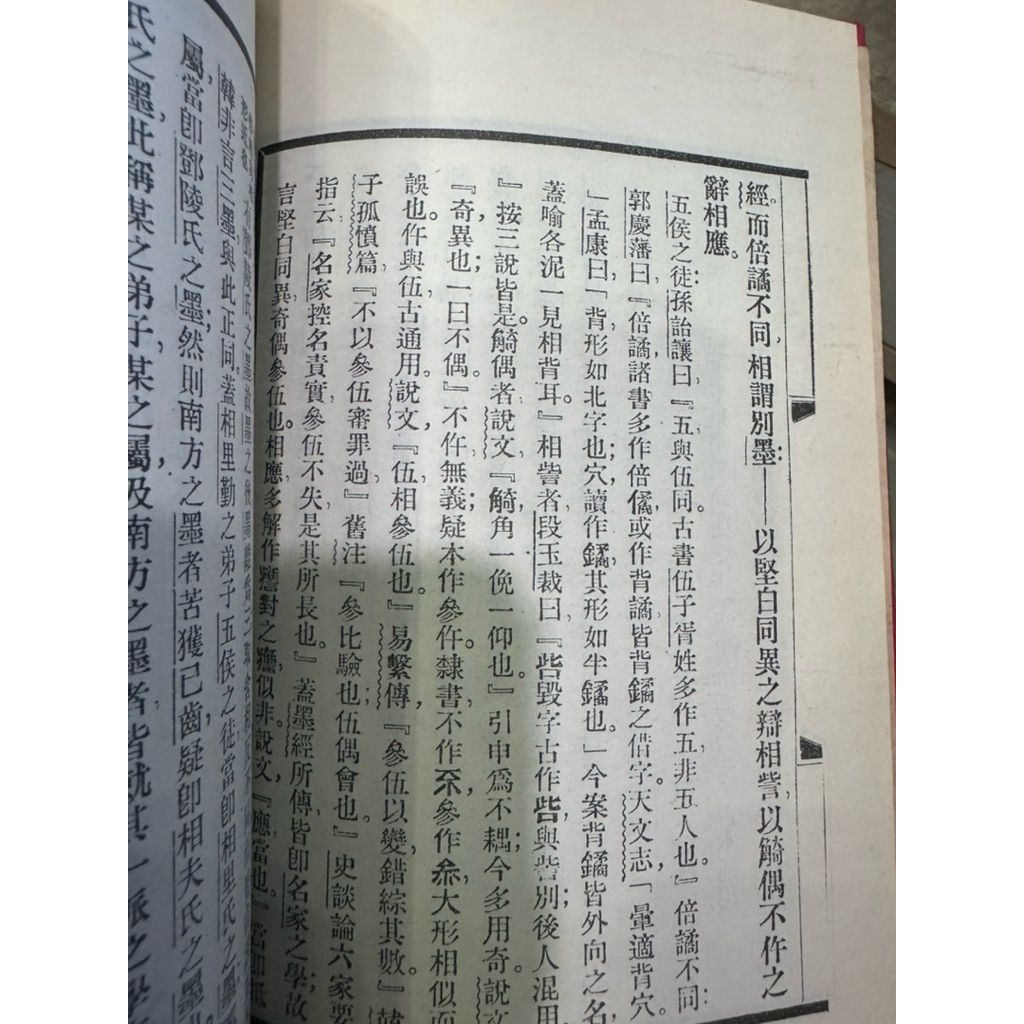 經。而倍譎不同，相謂別墨：——以堅白同異之辯相訾，以觭偶不仵之
辭相應。
五侯之徒：孫詒讓曰：『五與伍同。古書伍子胥姓多作五，非五人也。』倍譎不同：
郭慶藩曰：『倍譎，諸書多作倍僪，或作背譎，皆背鐍之借字。天文志，「暈適背穴。
」孟康曰：「背，形如北字也；穴，讀作鐍，其形如半鐍也。」今案背鐍皆外向之名，
蓋喻各泥一見相背耳。』相訾者，段玉裁曰：『呰毀字古作呰，與訾別；後人混用。
』按三說皆是。觭偶者，說文，『觭，角一俛一仰也。』引申爲不耦；今多用奇。說文
『奇，異也；一曰不偶。』不仵無義；疑本作參仵。隸書不作𠀚，參作叅，大形相似而
誤也。仵與伍古通用。說文，『伍，相參伍也。』易繫傳，『參伍以變，錯綜其數。』韓
子孤憤篇，『不以參伍審罪過。』舊注，『參，比驗也；伍，偶會也。』史談論六家要
指云，『名家控名責實，參伍不失，是其所長也。』蓋墨經所傳皆卽名家之學；故
言堅白同異，奇偶參伍也。相應，多解作譍對之譍，似非。說文，『應，當也。』當卽抵
韓非言三墨，與此正同。蓋相里勤之弟子五侯之徒當卽相里氏之墨
屬當卽鄧陵氏之墨；然則南方之墨者苦獲已齒，疑卽相夫氏之墨
氏之墨，此稱某之弟子，某之屬，及南方之墨者，皆就其一派之學